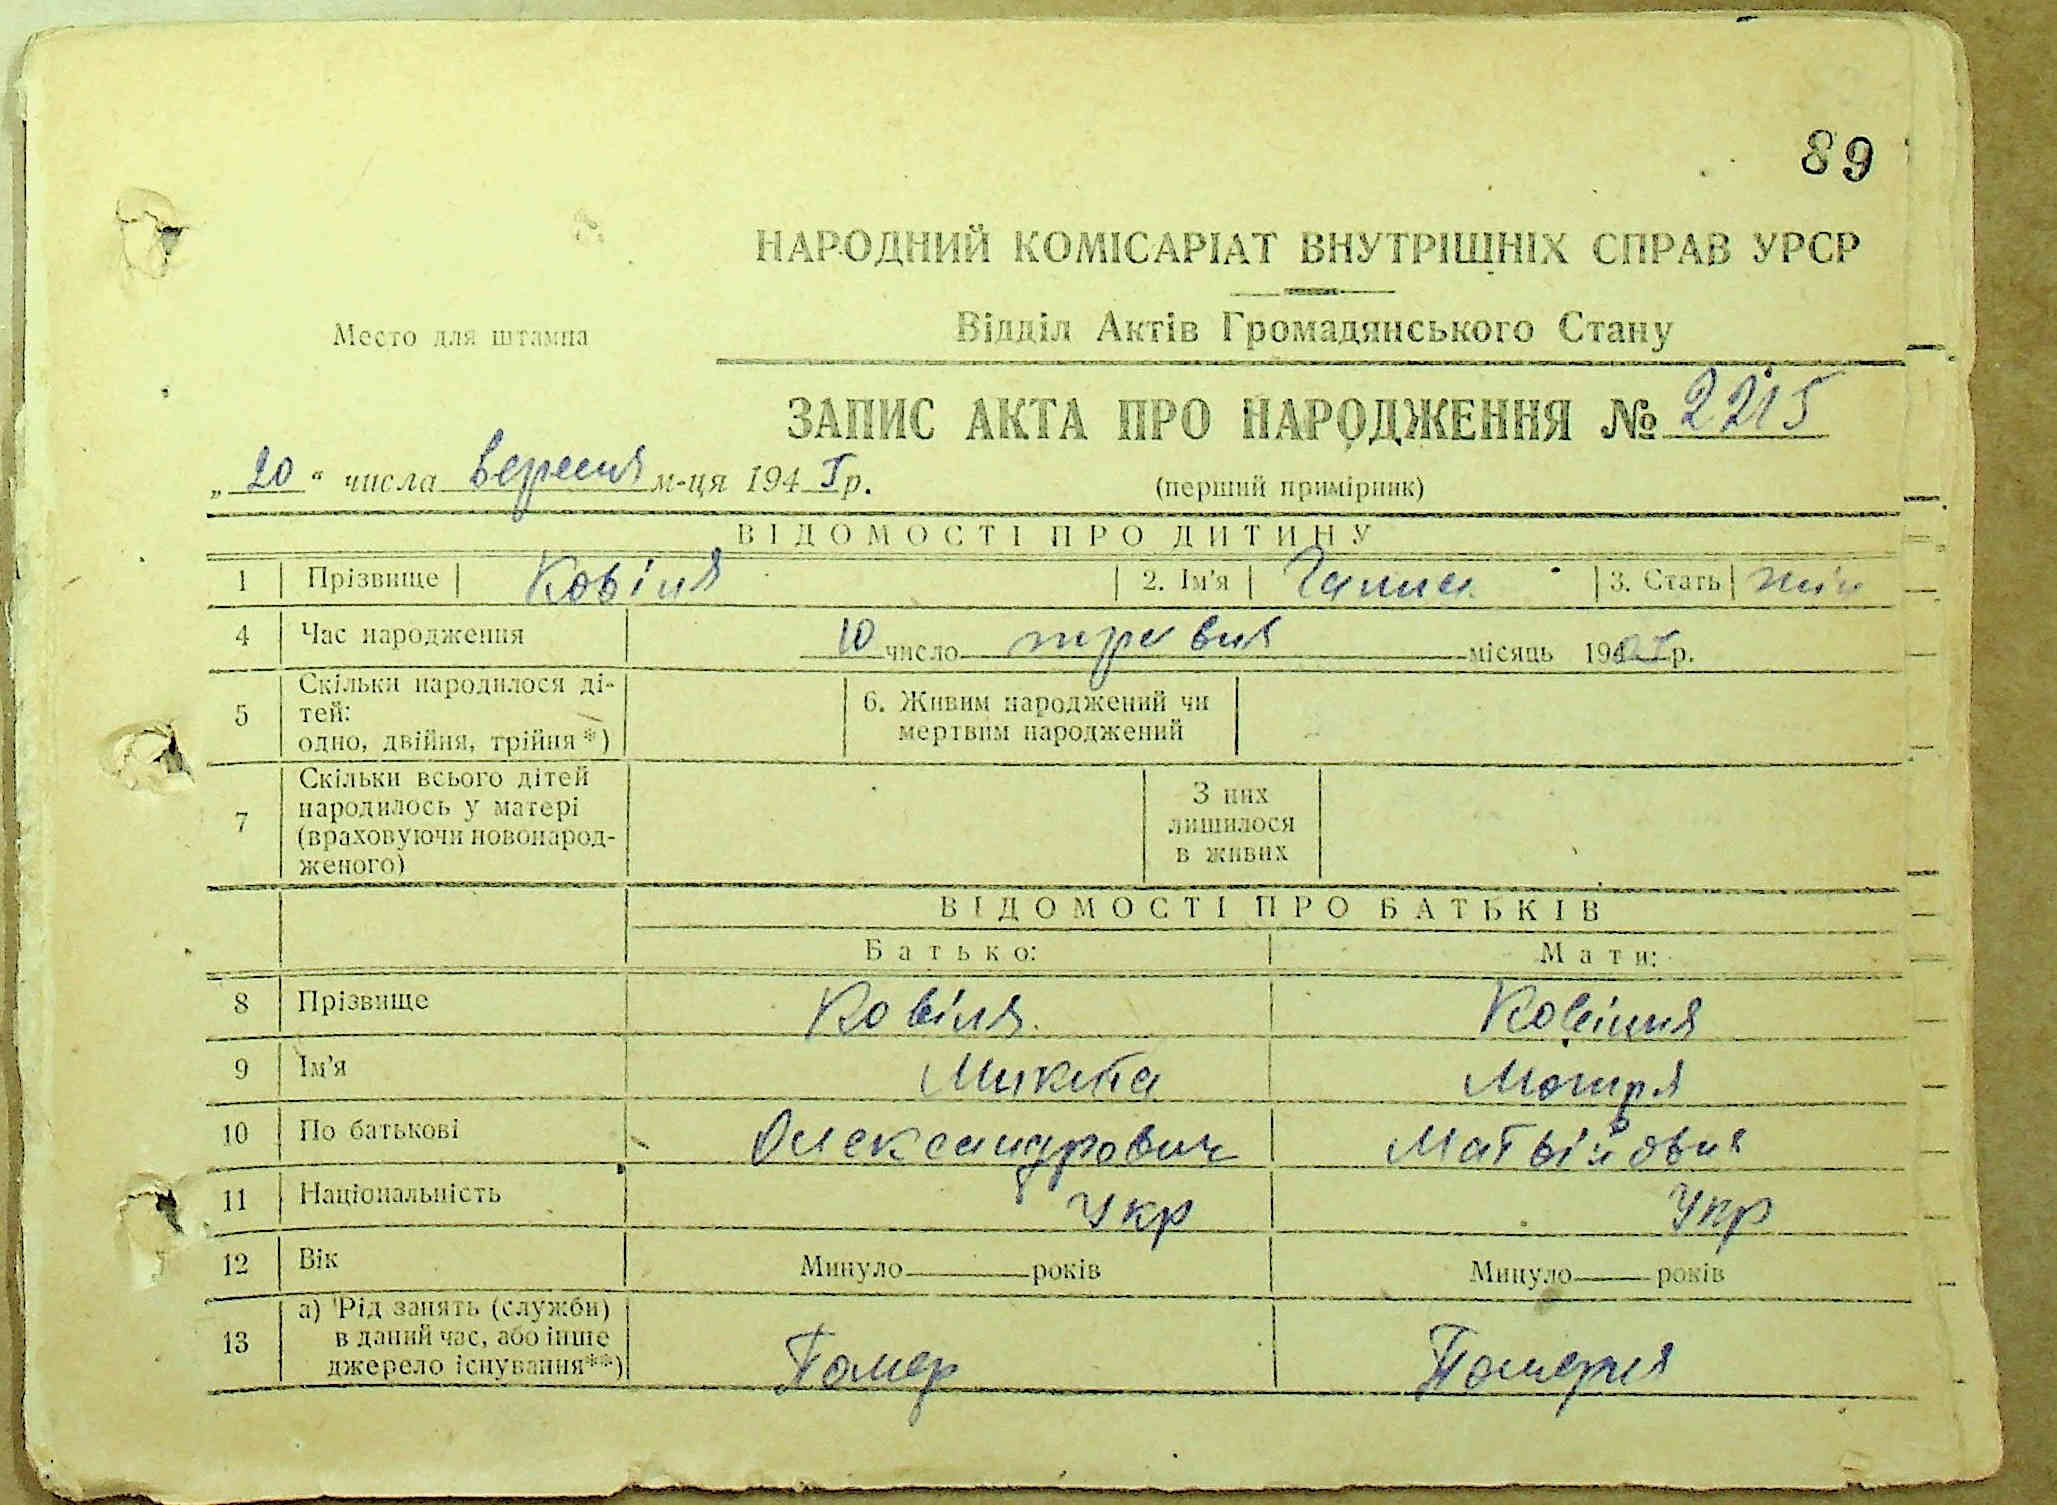 89
НАРОДНИЙ КОМІСАРІАТ ВНУТРІШНІХ СПРАВ УРСР
Место для штампа
Відділ Актів Громадянського Стану
ЗАПИС АКТА ПРО НАРОДЖЕННЯ № 2215
„20“ числа вересня м-ця 194 I р. (перший примірник)
ВІДОМОСТІ ПРО ДИТИНУ
1 Прізвище Ковіня 2. Ім'я Ганна 3. Стать жін
4 Час народження 10 число травня місяць 19 р.
5 Скільки народилося ді-
тей:
одно, двійня, трійня *)
6. Живим народжений чи
мертвим народжений
7 Скільки всього дітей
народилось у матері
(враховуючи новонарод-
женого)
З них
лишилося
в живих
ВІДОМОСТІ ПРО БАТЬКІВ
Батько: Мати:
8 Прізвище Ковіня Ковіння
9 Ім'я Микита Мотря
10 По батькові Олександрович Матвійовна
11 Національність Укр Укр
12 Вік Минуло років Минуло років
13 а) Рід занять (служби)
в даний час, або інше
джерело існування**)
Помер Померля